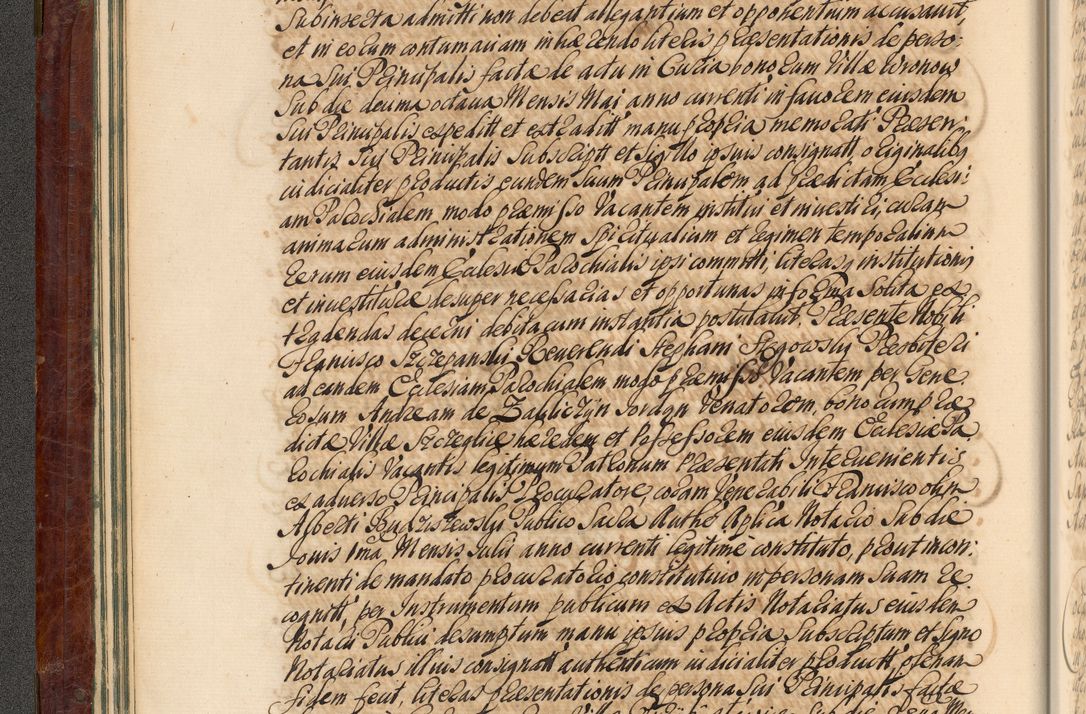 Subinserta admitti non debeat allegantium et opponentium accusavit,
et in eorum contumaciam inhærendo literis præsentationis de perso-
na Sui Principalis factæ de actu in Curia bonorum Villæ Wronow
Sub die decima octava Mensis Maj anno currenti in favorem eiusdem
Sui Principalis expeditt et extraditt manu propria memorati Præsen-
tantis Sui Principalis Subscriptt et Sigillo ipsius consignatt originaliby
iudicialiter productis eundem Suum Principalem ad prædictam Ecclesi-
am Parochialem modo præmisso Vacantem institui et investiri, curam
animarum administrationem Spiritualium et regimen temporalium
rerum eiusdem Ecclesiæ Parochialis ipsi committi, literasq institutionis
et investituræ desuper necessarias et opportunas in forma Solita ex-
tradendas decerni debita cum instantia postulavit. Præsente Nobili
Francisco Szczepanski Reverendi Stephani Presbiteri
ad eandem Ecclesiam Parochialem modo præmisso Vacantem per Gene-
rosum Andream de Zakliczyn Venatorem, bonorum præ-
dictæ Villæ hæredem et Possessorem eiusdem Ecclesiæ Pa-
rochialis Vacantis legitimum Patronum Præsentati Intervenientis
ex adverso Principalis Procuratore, coram Venerabili Francisco olim
Alberti Publico Sacra Authe Aplica Notario Sub die
Jovis 1ma Mensis Julii anno currenti legitime constituto, prout in con-
tinenti de mandato procuratorio constitutivo in personam Suam re-
cognitt, per Instrumentum publicum ex Actis Notariatus eiusdem
Notarii Publici desumptum manu ipsius propria Subscriptum et Signo
Notariatus illius consignatt authenticum iudicialiter productt, plenam
fidem fecit, literas præsentationis de persona Sui Principalis factæ